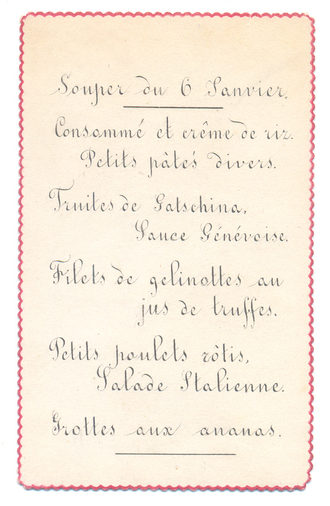 Souper du 6 Janvier.
Consommé et crême de riz.
Petits pâtés divers.
Truites de Gatschina,
Sauce Génévoise.
Filets de gelinottes au
jus de truffes.
Petits poulets rôtis,
Salade Italienne.
Grottes aux ananas.